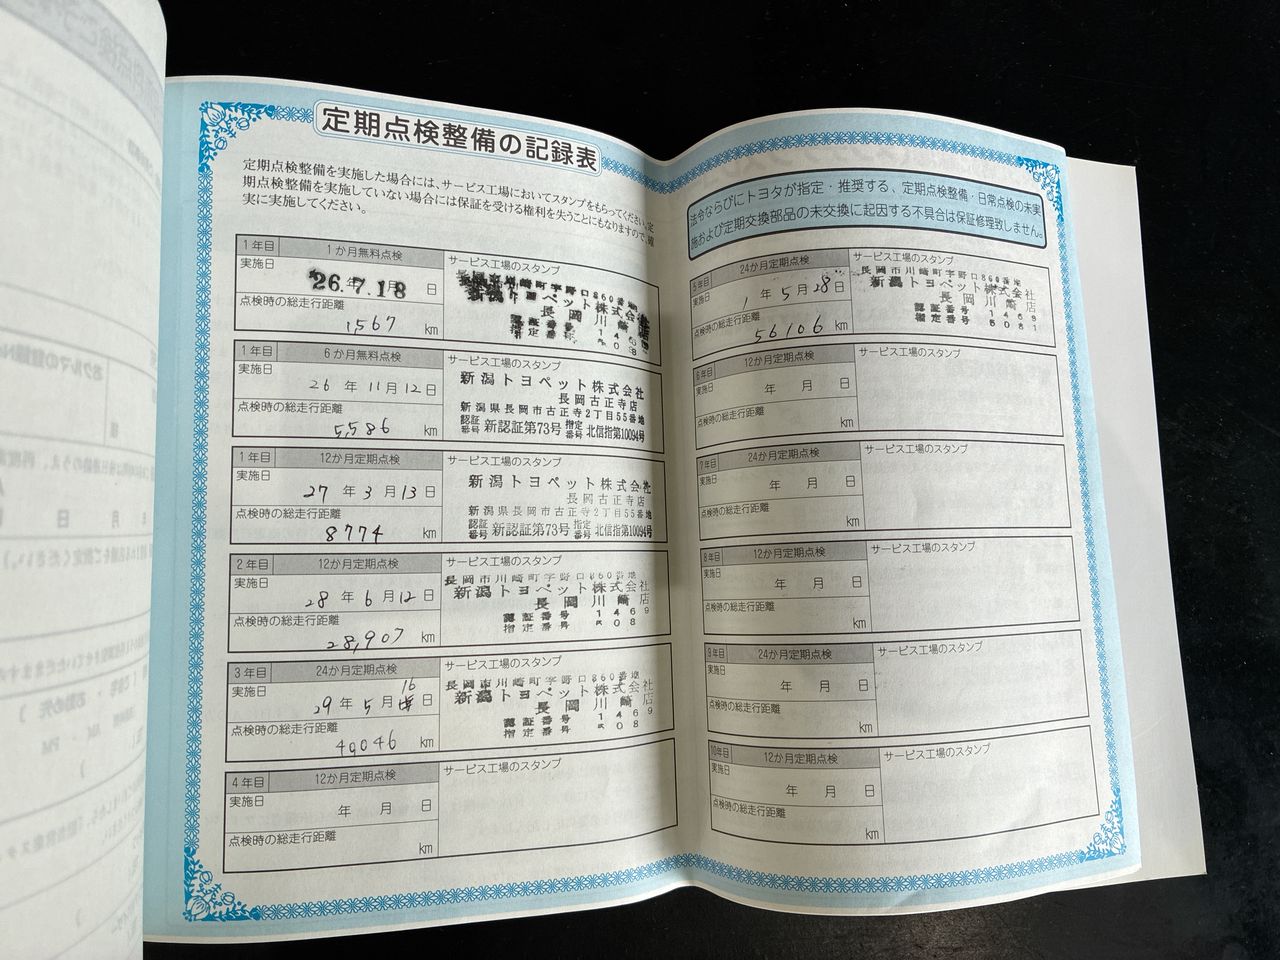 定期点検整備の記録表
定期点検整備を実施した場合には、サービス工場においてスタンプをもらってください。定
期点検整備を実施していない場合には保証を受ける権利を失うことにもなりますので、確
実に実施してください。
1年目 1か月無料点検 サービス工場のスタンプ
実施日
26.7.18 日
点検時の総走行距離
1567 km
長岡市川崎町字野口860番地
新潟トヨペット株式会社
長岡川崎店
認証番号 1469
指定番号
1年目 6か月無料点検 サービス工場のスタンプ
実施日
26 年 11 月 12 日
点検時の総走行距離
5,586 km
新潟トヨペット株式会社
長岡古正寺店
新潟県長岡市古正寺2丁目55番地
認証番号 新認証第73号 指定番号 北信指第10094号
1年目 12か月定期点検 サービス工場のスタンプ
実施日
27 年 3 月 13 日
点検時の総走行距離
8774 km
新潟トヨペット株式会社
長岡古正寺店
新潟県長岡市古正寺2丁目55番地
認証番号 新認証第73号 指定番号 北信指第10094号
2年目 12か月定期点検 サービス工場のスタンプ
実施日
28 年 6 月 12 日
点検時の総走行距離
28,907 km
長岡市川崎町字野口860番地
新潟トヨペット株式会社
長岡川崎店
認証番号 1469
指定番号
3年目 24か月定期点検 サービス工場のスタンプ
実施日
16
29 年 5 月 日
点検時の総走行距離
40,046 km
長岡市川崎町字野口860番地
新潟トヨペット株式会社
長岡川崎店
認証番号 1469
指定番号
4年目 12か月定期点検 サービス工場のスタンプ
実施日
年 月 日
点検時の総走行距離
km
法令ならびにトヨタが指定・推奨する、定期点検整備・日常点検の未実
施および定期交換部品の未交換に起因する不具合は保証修理致しません。
5年目 24か月定期点検 サービス工場のスタンプ
実施日
1 年 5 月 28 日
点検時の総走行距離
56106 km
長岡市川崎町字野口860番地
新潟トヨペット株式会社
長岡川崎店
認証番号 1469
指定番号
6年目 12か月定期点検 サービス工場のスタンプ
実施日
年 月 日
点検時の総走行距離
km
7年目 24か月定期点検 サービス工場のスタンプ
実施日
年 月 日
点検時の総走行距離
km
8年目 12か月定期点検 サービス工場のスタンプ
実施日
年 月 日
点検時の総走行距離
km
9年目 24か月定期点検 サービス工場のスタンプ
実施日
年 月 日
点検時の総走行距離
km
10年目 12か月定期点検 サービス工場のスタンプ
実施日
年 月 日
点検時の総走行距離
km